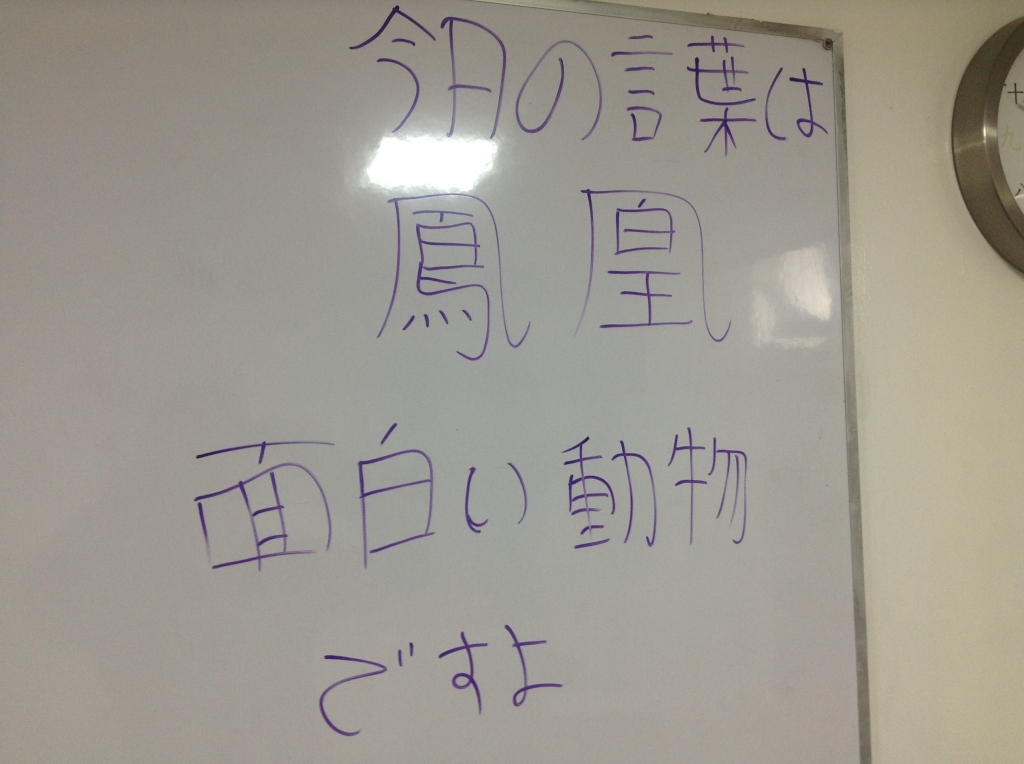 今日の言葉は
鳳凰
面白い動物
ですよ
十
九
八